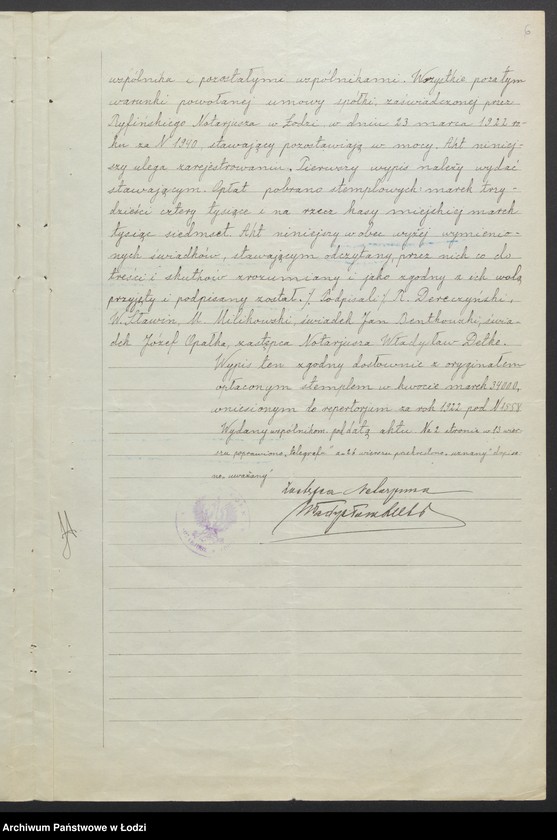 6
wspólnika i pozostałymi wspólnikami. Wszystkie pozatym
warunki powołanej umowy spółki, zaświadczonej przez
Ryfińskiego Notarjusza w Łodzi w dniu 23 marca 1922 ro-
ku za N 1940, stawający pozostawiają w mocy. Akt niniej-
szy ulega zarejestrowaniu. Pierwszy wypis należy wydać
stawającym. Opłat pobrano stemplowych marek trzy-
dzieści cztery tysiące i na rzecz kasy miejskiej marek
tysiąc siedmset. Akt niniejszy w obec wyżej wymienio-
nych świadków, stawającym odczytany, przez nich co do
treści i skutków zrozumiany i jako zgodny z ich wolą
przyjęty i podpisany został. /Podpisali/ R. Dereczyński,
W. Stawin, M Milikowski, świadek Jan Bentkowski, świa-
dek Józef Opałka, zastępca Notarjusza Władysław Delke.
Wypis ten zgodny dosłownie z oryginałem
opłaconym stemplem w kwocie marek 34000,
wniesionym do repertorjum za rok 1922 pod N 1558
Wydany wspólnikom pod datą aktu Na 2 stronie w 13 wier-
szu poprawiono, "telegrafu" a 26 wierszu przekreślono "uznany" dopisa-
no "uważany"
Zastępca Notarjusza
Władysław Delke
Archiwum Państwowe w Łodzi